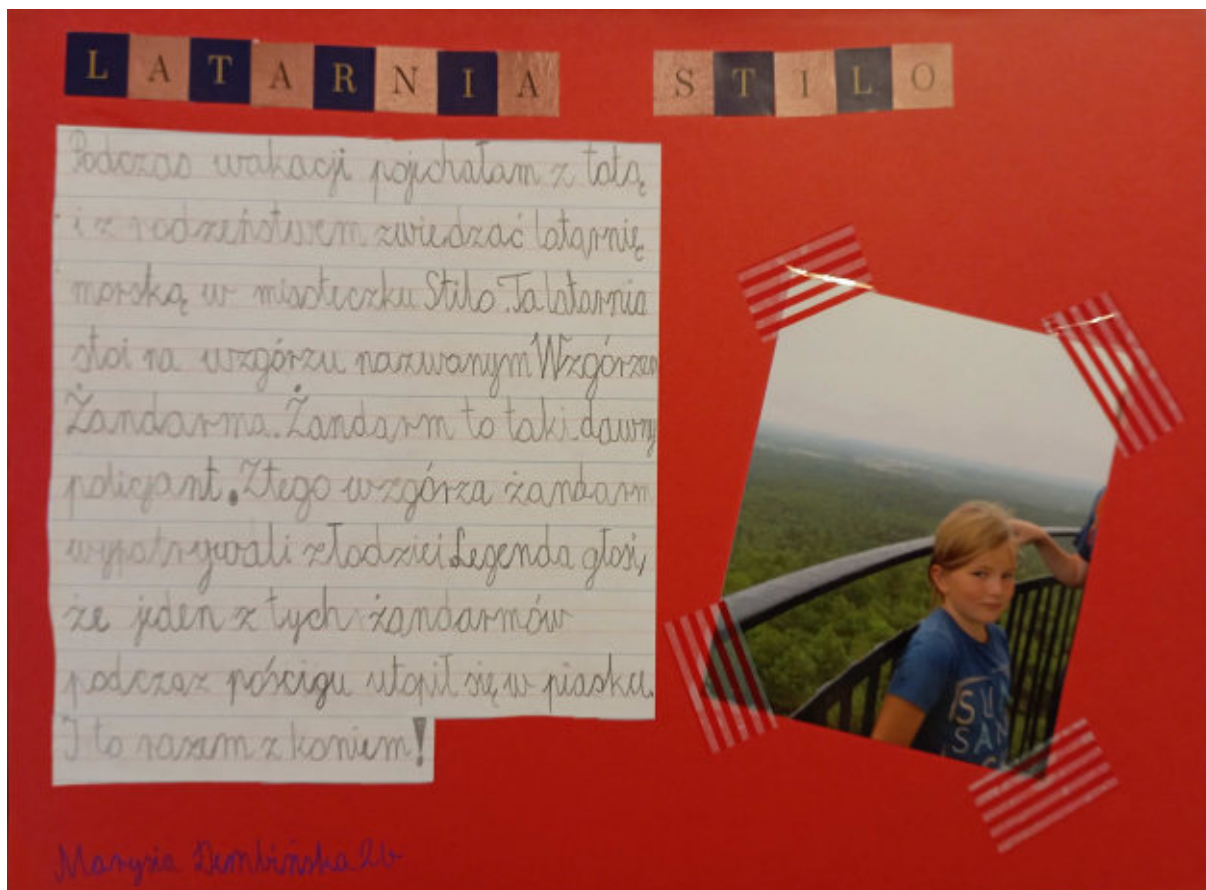 LATARNIA STILO
Podczas wakacji pojechałam z tatą
i z rodzeństwem zwiedzać latarnię
morską w miasteczku Stilo. Ta latarnia
stoi na wzgórzu nazwanym Wzgórzem
Żandarma. Żandarm to taki dawny
policjant. Z tego wzgórza żandarm
wypatrywali złodziei Legenda głosi,
że jeden z tych żandarmów
podczas pościgu utopił się w piasku.
I to razem z koniem!
SU
SAN
Marysia Dembińska 2b